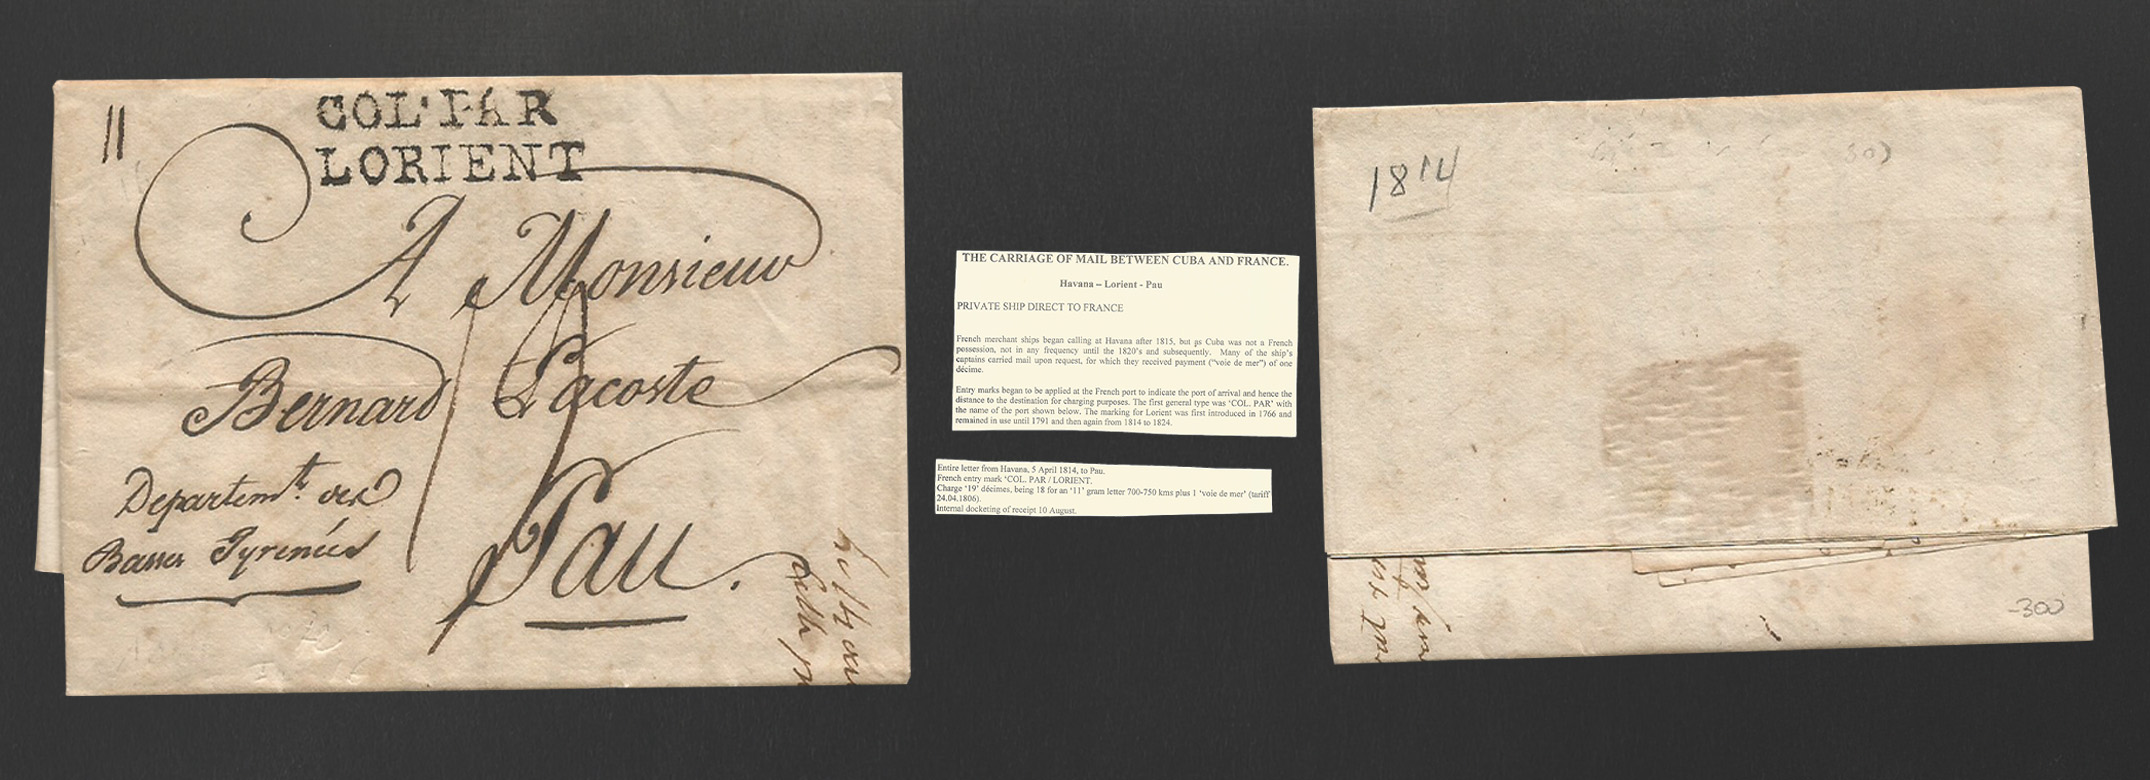 11
COL·PAR
LORIENT
A Monsieur
19
Bernard Lacoste
Departemt. des
Basses Pyrenées
Pau.
THE CARRIAGE OF MAIL BETWEEN CUBA AND FRANCE.
Havana – Lorient - Pau
PRIVATE SHIP DIRECT TO FRANCE
French merchant ships began calling at Havana after 1815, but as Cuba was not a French
possession, not in any frequency until the 1820's and subsequently. Many of the ship's
captains carried mail upon request, for which they received payment ("voie de mer") of one
décime.
Entry marks began to be applied at the French port to indicate the port of arrival and hence the
distance to the destination for charging purposes. The first general type was 'COL. PAR' with
the name of the port shown below. The marking for Lorient was first introduced in 1766 and
remained in use until 1791 and then again from 1814 to 1824.
Entire letter from Havana, 5 April 1814, to Pau.
French entry mark 'COL. PAR / LORIENT.
Charge '19' décimes, being 18 for an '11' gram letter 700-750 kms plus 1 'voie de mer' (tariff
24.04.1806).
Internal docketing of receipt 10 August.
1814
-300